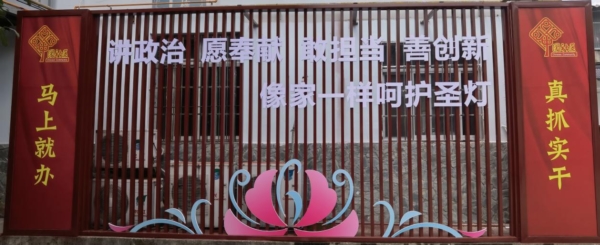 讲政治 愿奉献 敢担当 善创新
像家一样呵护圣灯
马上就办
真抓实干